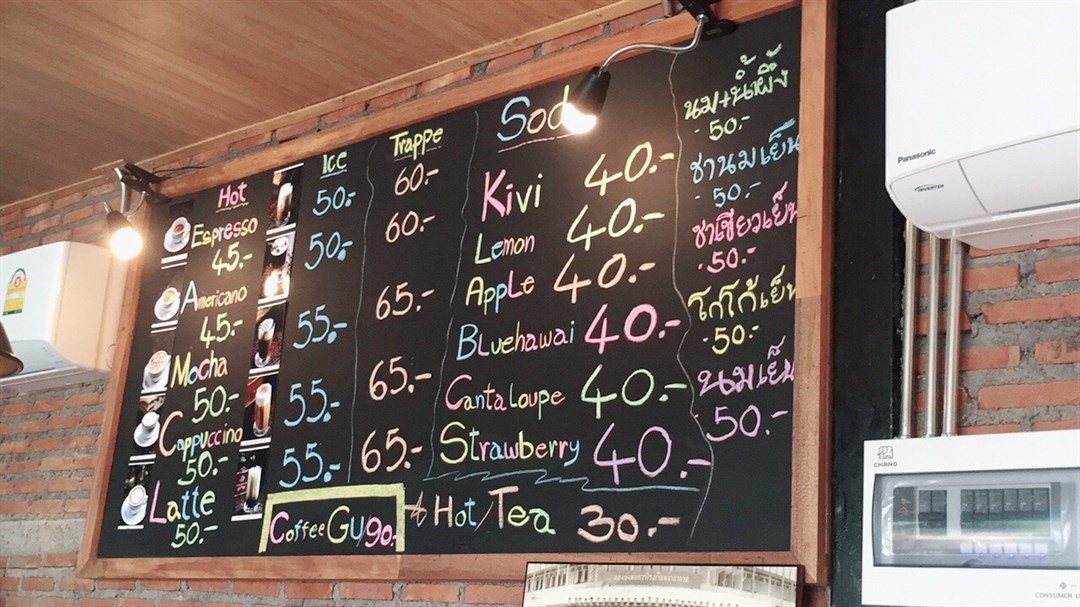 Hot
Espresso
45.-
Americano
45.-
Mocha
50.-
Cappuccino
50.-
Latte
50.-
Ice
50.-
50.-
55.-
55.-
55.-
Trappe
60.-
60.-
65.-
65.-
65.-
Coffee Gu/90.-
Sod
Kivi 40.-
Lemon 40.-
Apple 40.-
Bluehawai 40.-
Cantaloupe 40.-
Strawberry 40.-
Hot/Tea 30.-
นม+น้ำผึ้ง
50.-
ชานมเย็น
50.-
ชาเขียวเย็น
50.-
โกโก้เย็น
50.-
นมเย็น
50.-
Panasonic
INVERTER
CHANG
CONSUMER U